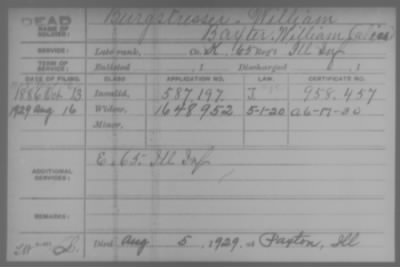 DEAD
NAME OF SOLDIER: Burgstresser, William
Baxter, William (alias)
SERVICE: Late rank, Co. K, 65 Regt Ill Inf
TERM OF SERVICE: Enlisted , 1 Discharged , 1
DATE OF FILING. CLASS. APPLICATION NO. LAW. CERTIFICATE NO.
1886 Oct 13 Invalid, 587,197 J. 958.457
1929 Aug 16 Widow, 1648952 5-1-20 a6-17-30
Minor,
ADDITIONAL SERVICES: E. 65 Ill Inf
REMARKS:
Died Aug 5, 1929, at Paxton, Ill